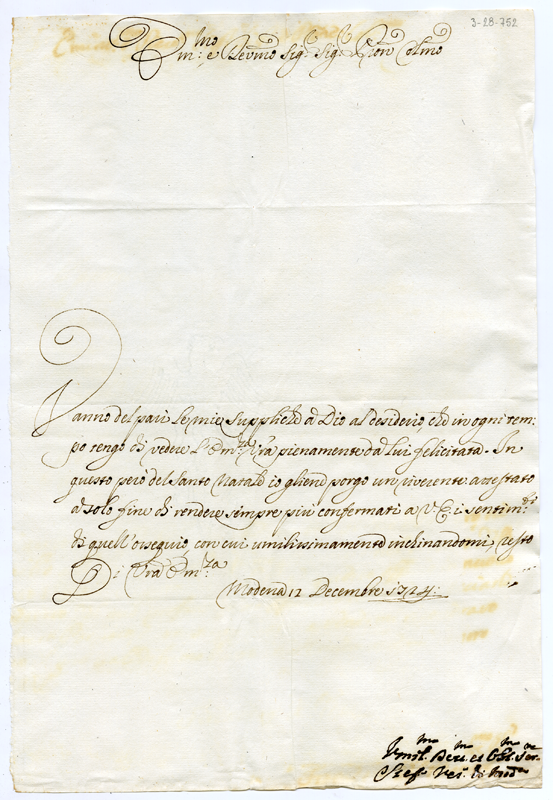 3-28-752
Em:mo e Rev:mo Sig:r Sig:r Pron Colmo
Vanno del pari le mie suppliche à Dio al desiderio che in ogni tem-
po tengo di vedere l'Em:za V'ra pienamente da lui felicitata. In
questo però del Santo Natale io gliene porgo un riverente attestato
à solo fine di rendere sempre più confermati a V. E. i sentim:ti
di quell'ossequio, con cui umilissimamente inchinandomi, resto
Di V'ra Em:za
Modena 12 Decembre 1724:
Umil:mo Dev:mo et Obl:mo Ser:re
Stef:o Ves:o di Mod:a